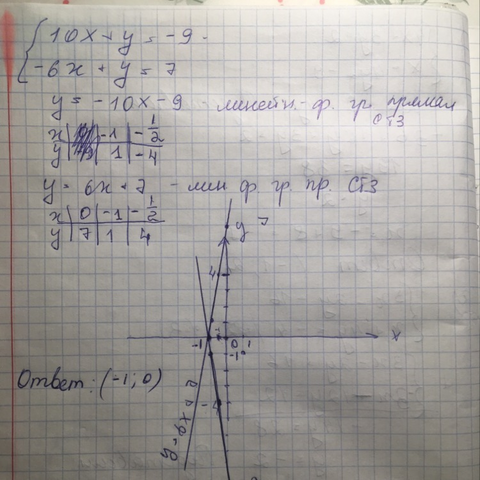 10x + y = -9
-6x + y = 7
y = -10x - 9 - линейн. ф. гр. прямая
x | -1 | -1/2
y | 1 | -4
y = 6x + 7 - лин ф. гр. пр.
x | 0 | -1 | -1/2
y | 7 | 1 | 4
y 7
4
x
-1 0 1
-1
Ответ: (-1; 0)
-4
y = 6x + 7